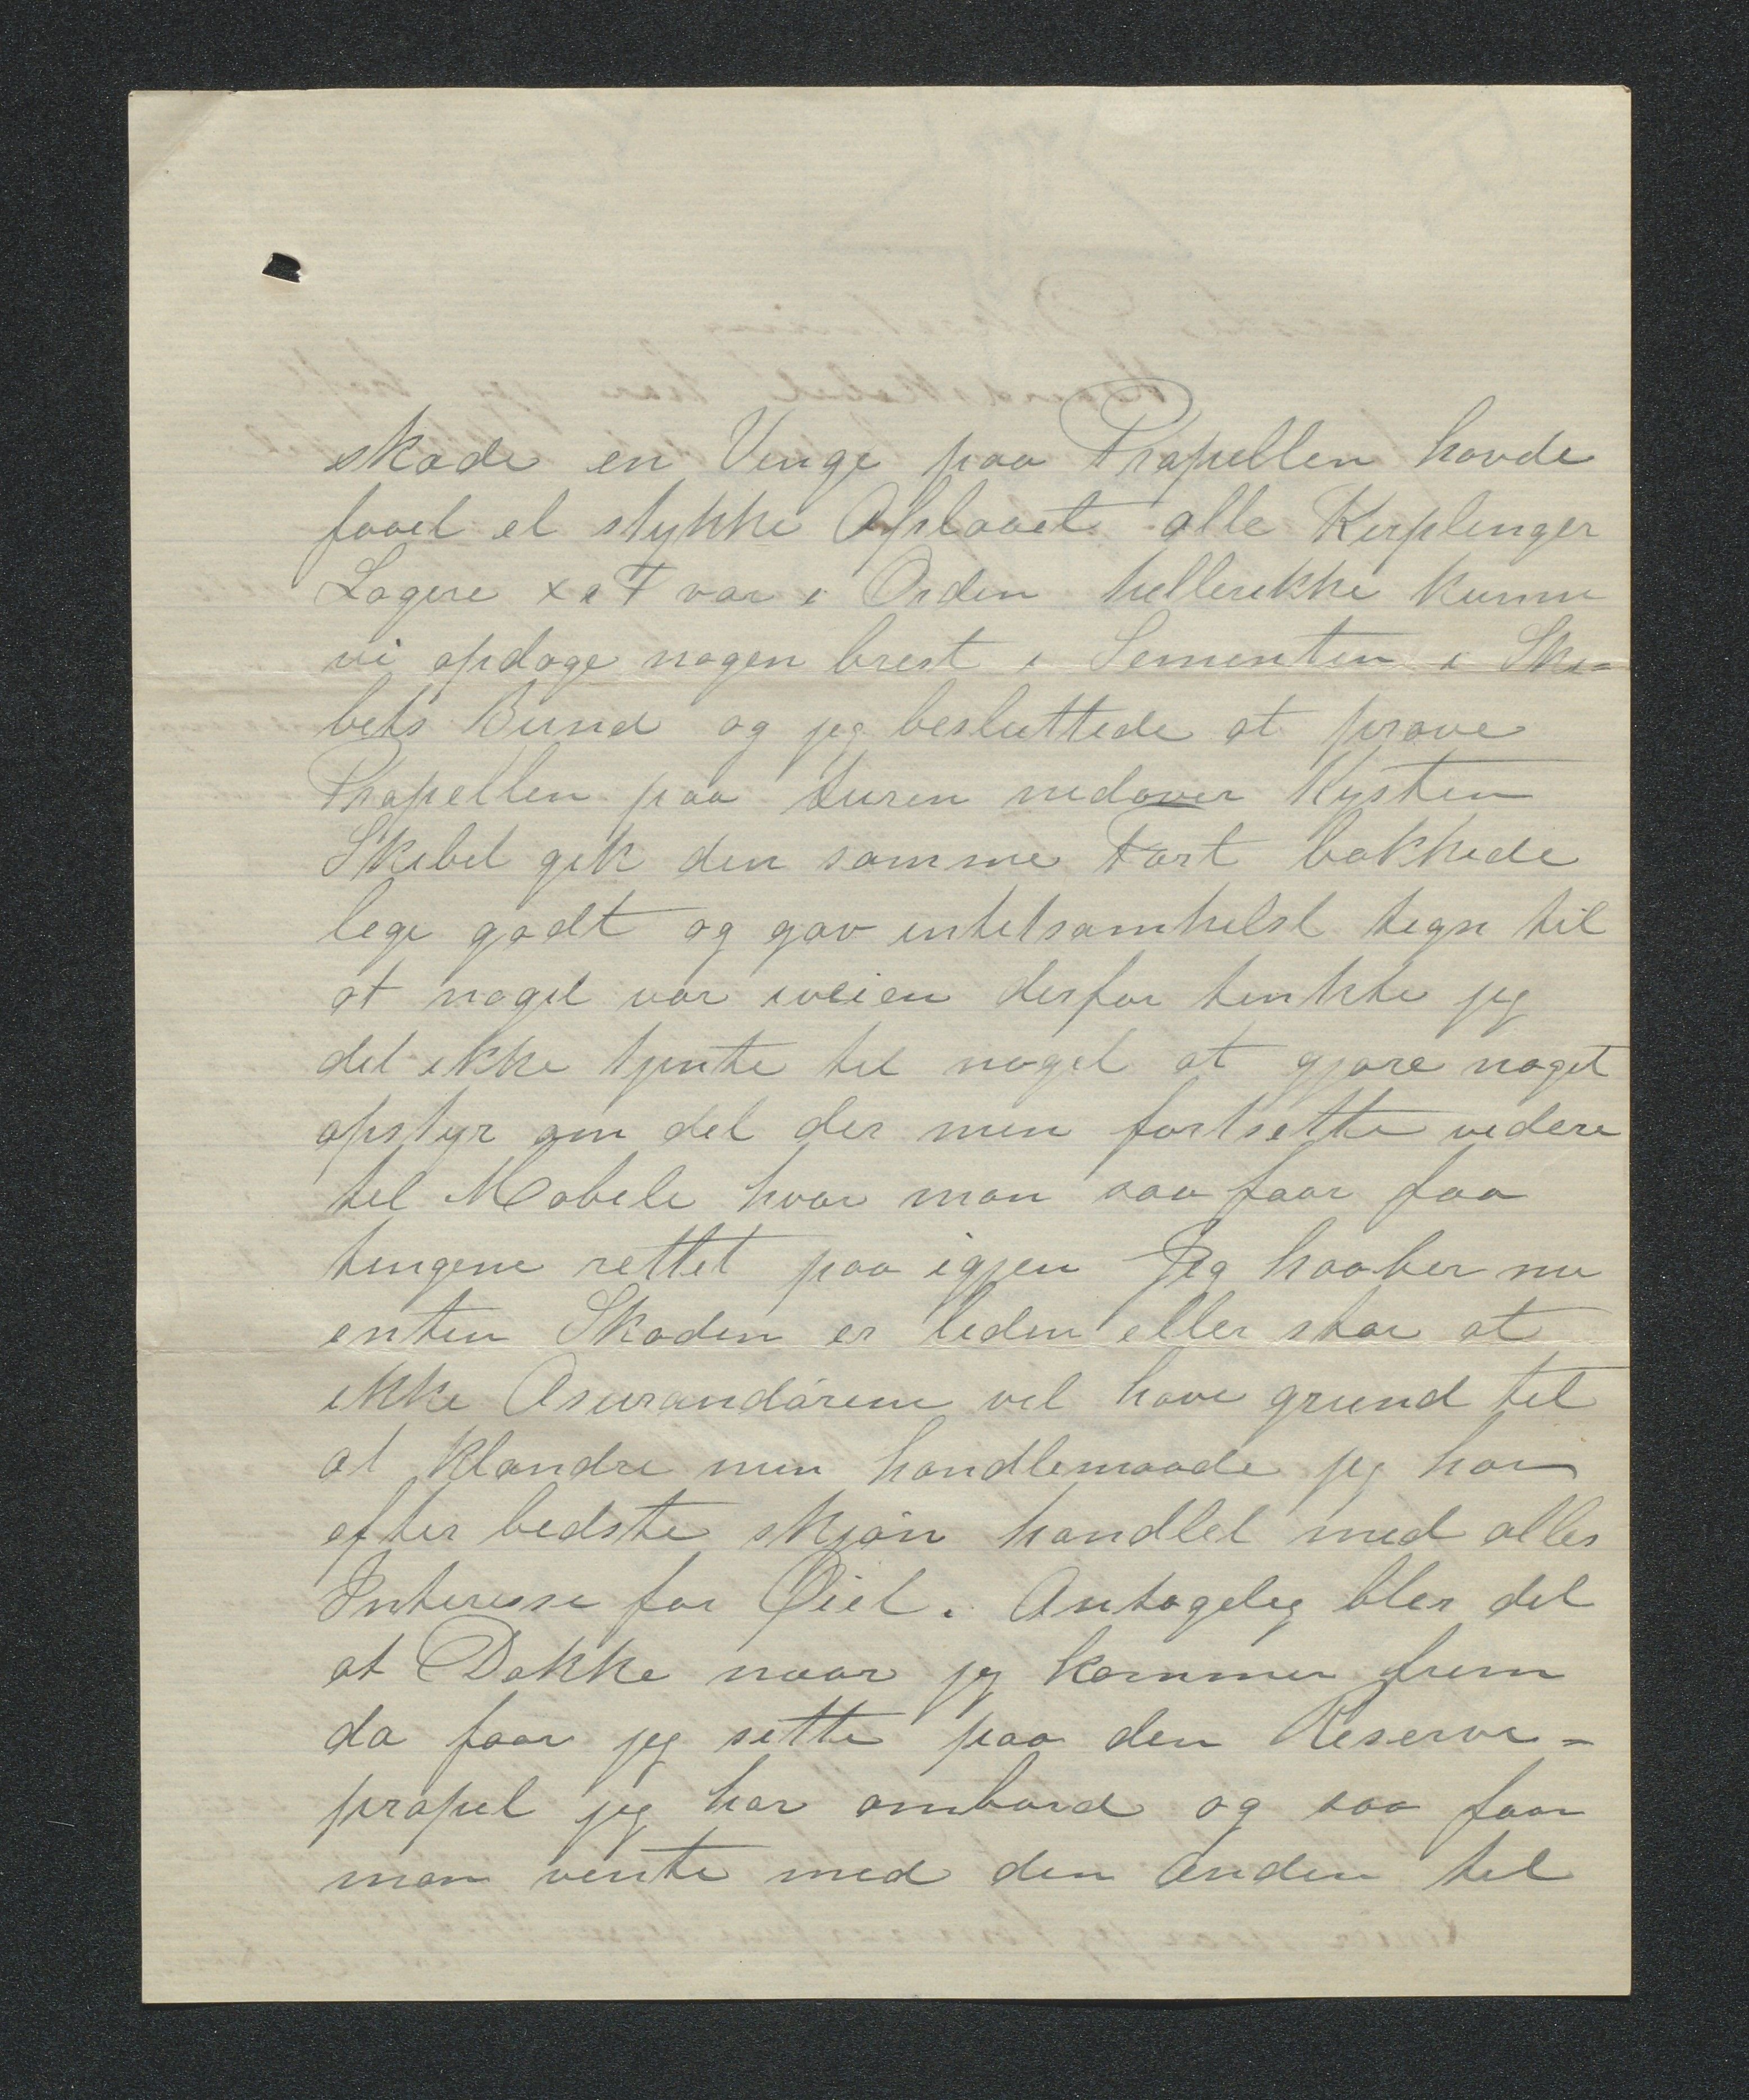 skade en Venge paa Propellen havde
faaet et stykke Afslaaet alle Kuplinger
Lagere x a T var i Orden hellerikke kunne
vi opdage nogen brest i Sementen i Ski=
bets Bund og jeg besluttede at prøve
Propellen paa turen nedover Kysten
Skibet gik den samme Fart bakkede
lige godt og gav intetsomhelst tegn til
at noget var iveien derfor tenkte jeg
det ikke tjente til noget at gjøre noget
opstyr om det der men fortsette videre
til Mobile hvor man saa faar faa
tingene rettet paa igjen Jeg haaber nu
enten Skaden er liden eller stor at
ikke Asurandörene vil have grund til
at klandre min handlemaade jeg har
efter bedste skjön handlet med alles
Interesse for Øiet. Antagelig bler det
at Dokke naar jeg kommer frem
da faar jeg sette paa den Reserve=
propel jeg har ombord og saa faar
man vente med den anden til